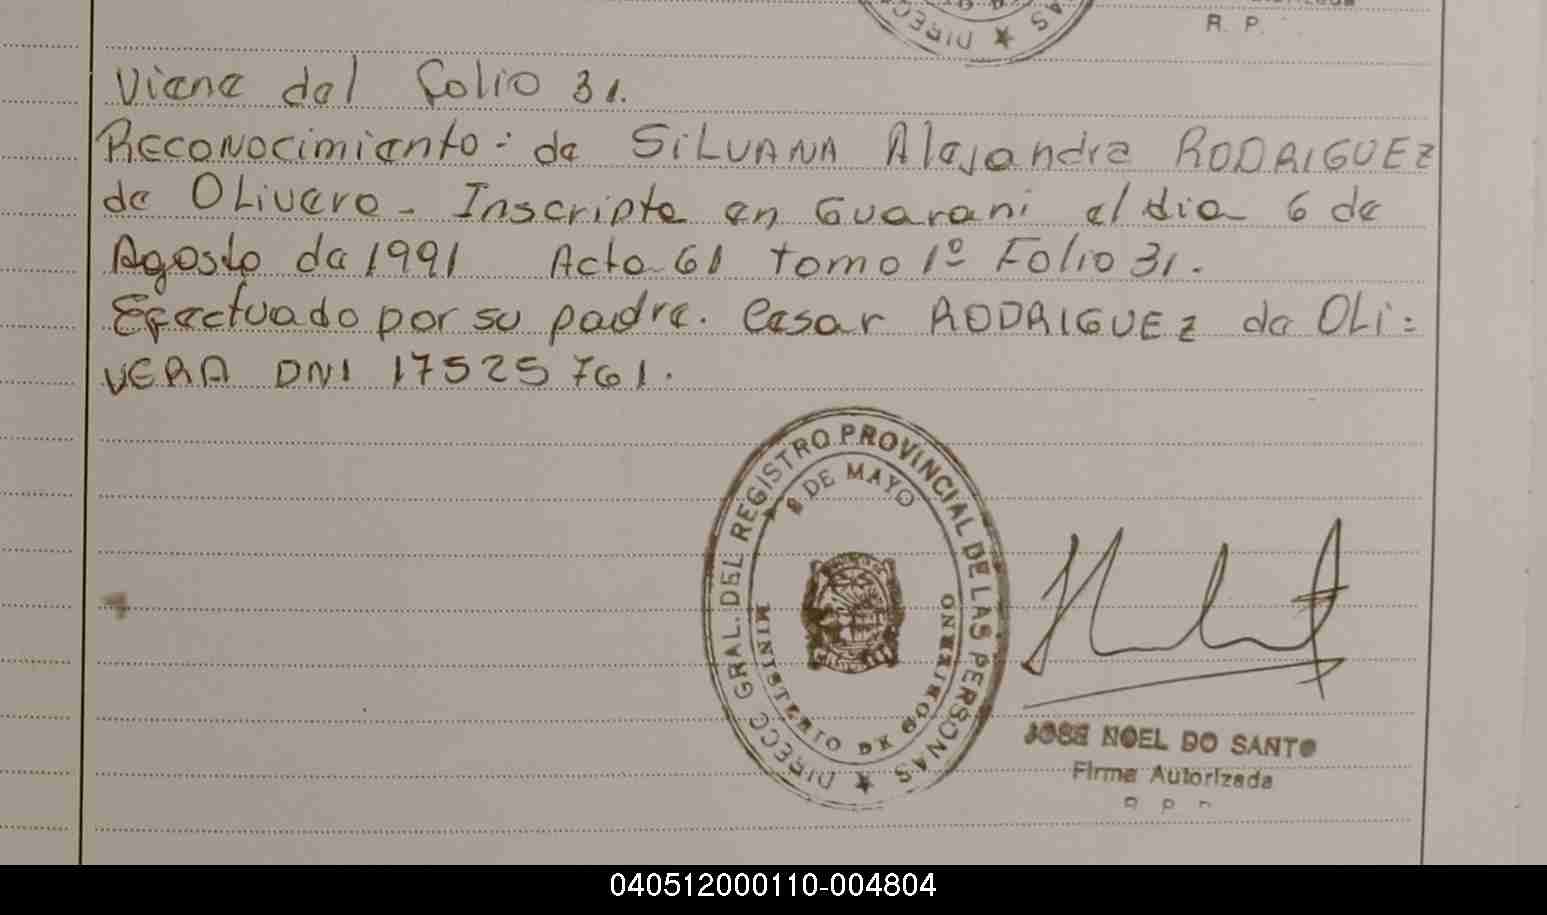 R. P.
Viene del folio 31.
Reconocimiento: de SILVANA Alejandra RODRIGUEZ
de Olivera - Inscripta en Guarani el dia 6 de
Agosto de 1991 Acta 61 tomo 1º Folio 31.
Efectuado por su padre. Cesar RODRIGUEZ de OLI=
VERA DNI 17525761.
DIRECC GRAL. DEL REGISTRO PROVINCIAL DE LAS PERSONAS
8 DE MAYO
MINISTERIO DE GOBIERNO
JOSE NOEL DO SANTO
Firma Autorizada
040512000110-004804